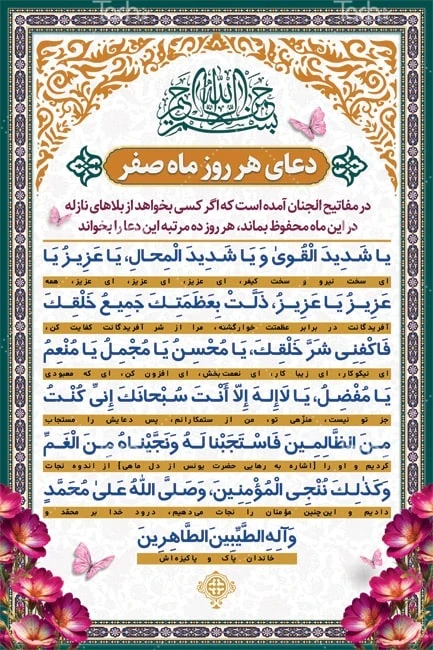 بسم الله الرحمن الرحیم
دعای هر روز ماه صفر
در مفاتیح الجنان آمده است که اگر کسی بخواهد از بلاهای نازله
در این ماه محفوظ بماند، هر روز ده مرتبه این دعا را بخواند
یا شَدیدَ الْقُویٰ وَ یَا شَدیدَ الْمِحالِ، یَا عَزیزُ یَا
ای سخت نیرو و سخت کیفر، ای عزیز، ای عزیز، ای عزیز، همه
عَزیزُ یَا عَزیزُ، ذَلَّتْ بِعَظَمَتِكَ جَمیعُ خَلْقِكَ
آفریدگانت در برابر عظمتت خوارگشته، مرا از شر آفریدگانت کفایت کن،
فَاكْفِنی شَرَّ خَلْقِكَ، یَا مُحْسِنُ یَا مُجْمِلُ یَا مُنْعِمُ
ای نیکوکار، ای زیبا کار، ای نعمت‌بخش، ای افزون کن، ای که معبودی
یَا مُفْضِلُ، یَا لَاإِلهَ إِلّا أَنْتَ سُبْحانَكَ إِنّی كُنْتُ
جز تو نیست، منزّهی تو، من از ستمکارانم، پس دعایش را مستجاب
مِنَ الظَّالِمینَ فَاسْتَجَبْنا لَهُ وَنَجَّیْناهُ مِنَ الْغَمِّ
کردیم و او را [اشاره به رهایی حضرت یونس از دل ماهی] از اندوه نجات
وَكَذٰلِكَ نُنْجِی الْمُؤْمِنینَ، وَصَلَّی اللّٰهُ عَلیٰ مُحَمَّدٍ
دادیم و این‌چنین مؤمنان را نجات می‌دهیم، درود خدا بر محمّد و
وَآلِهِ الطَّیِّبینَ الطَّاهِرینَ
خاندان پاک و پاکیزه‌اش